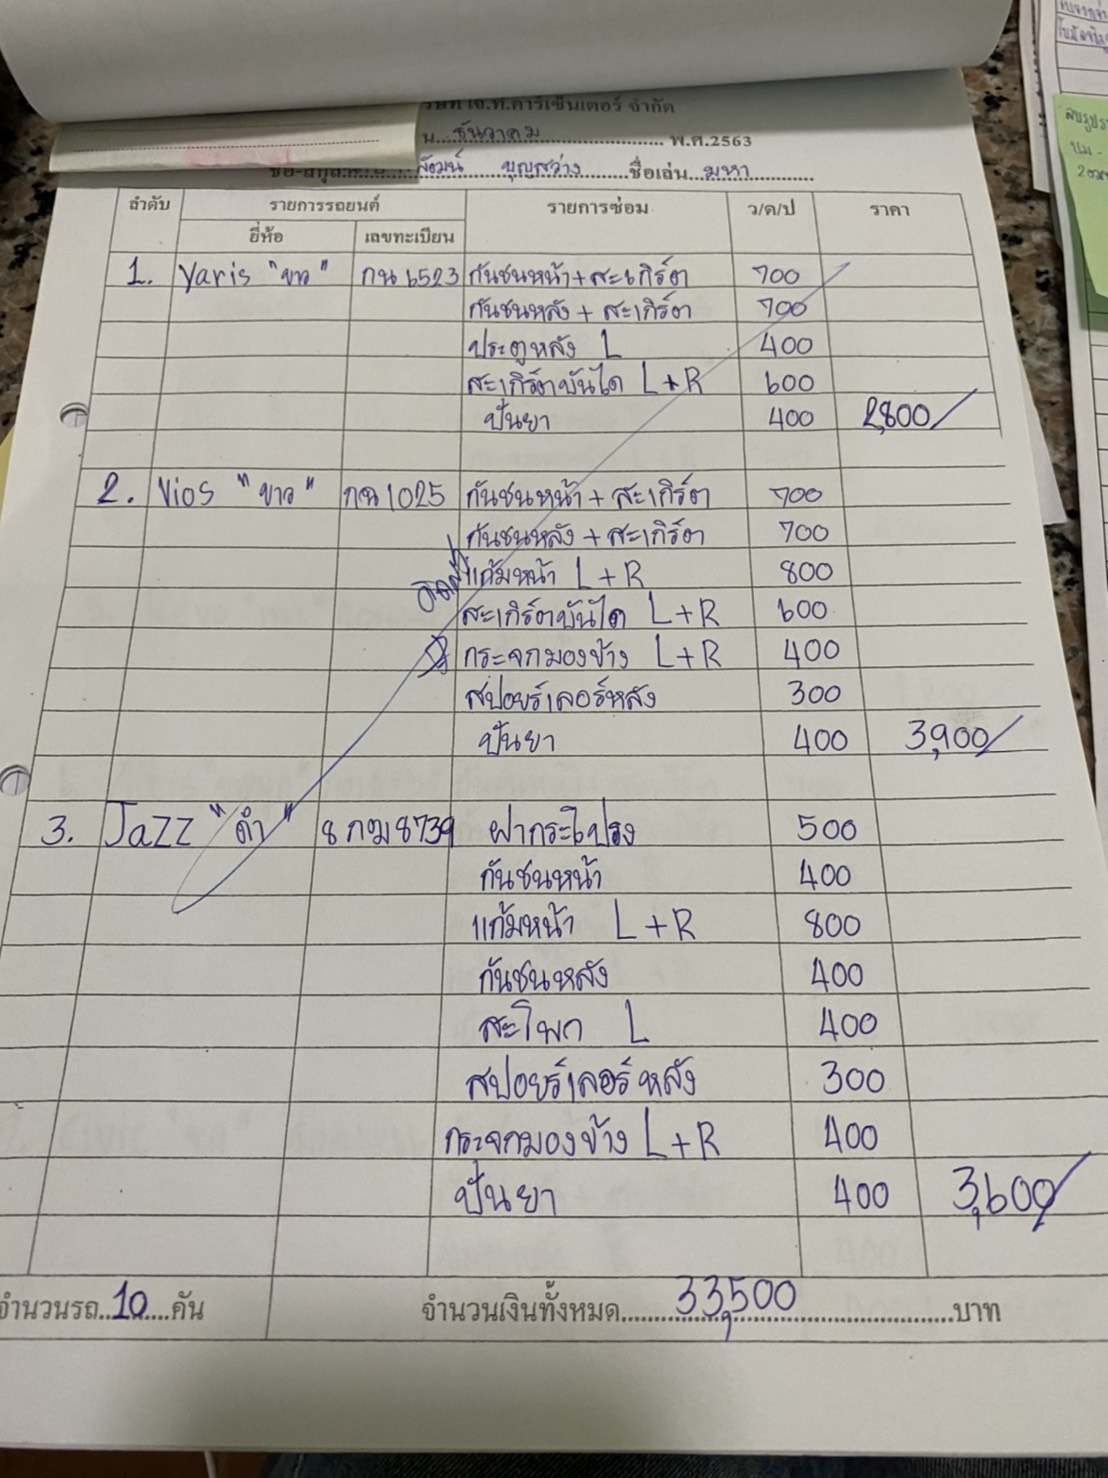 เจ.ที.คาร์เซ็นเตอร์ จำกัด
ธันวาคม พ.ศ.2563
บุญสว่าง ชื่อเล่น มหา
ลำดับ รายการรถยนต์ รายการซ่อม ว/ด/ป ราคา
ยี่ห้อ เลขทะเบียน
1. Yaris "ขาว" กน 6523 กันชนหน้า+สะเกิร์ต 700
กันชนหลัง + สะเกิร์ต 700
ประตูหลัง L 400
สะเกิร์ตบันได L+R 600
ปั่นยา 400 2,800/
2. Vios "ขาว" 1025 กันชนหน้า + สะเกิร์ต 700
กันชนหลัง + สะเกิร์ต 700
แก้มหน้า L+R 800
สะเกิร์ตบันได L+R 600
กระจกมองข้าง L+R 400
สปอยร์เลอร์หลัง 300
ปั่นยา 400 3,900/
3. Jazz "ดำ" 8739 ฝากระโปรง 500
กันชนหน้า 400
แก้มหน้า L+R 800
กันชนหลัง 400
สะโพก L 400
สปอยร์เลอร์หลัง 300
กระจกมองข้าง L+R 400
ปั่นยา 400 3,600/
จำนวนรถ 10 คัน จำนวนเงินทั้งหมด 33,500 บาท